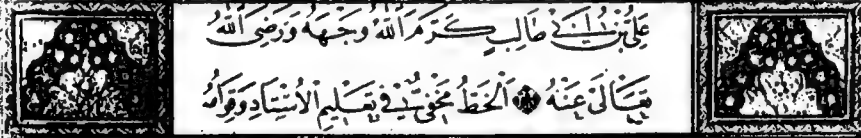 عَلِيُّ بْنُ أَبِي طَالِبٍ كَرَّمَ اللّٰهُ وَجْهَهُ وَرَضِيَ اللّٰهُ
تَعَالَى عَنْهُ ۞ اَلْخَطُّ مَخْفِيٌّ فِي تَعْلِيمِ الْأُسْتَادِ وَقِوَامُهُ